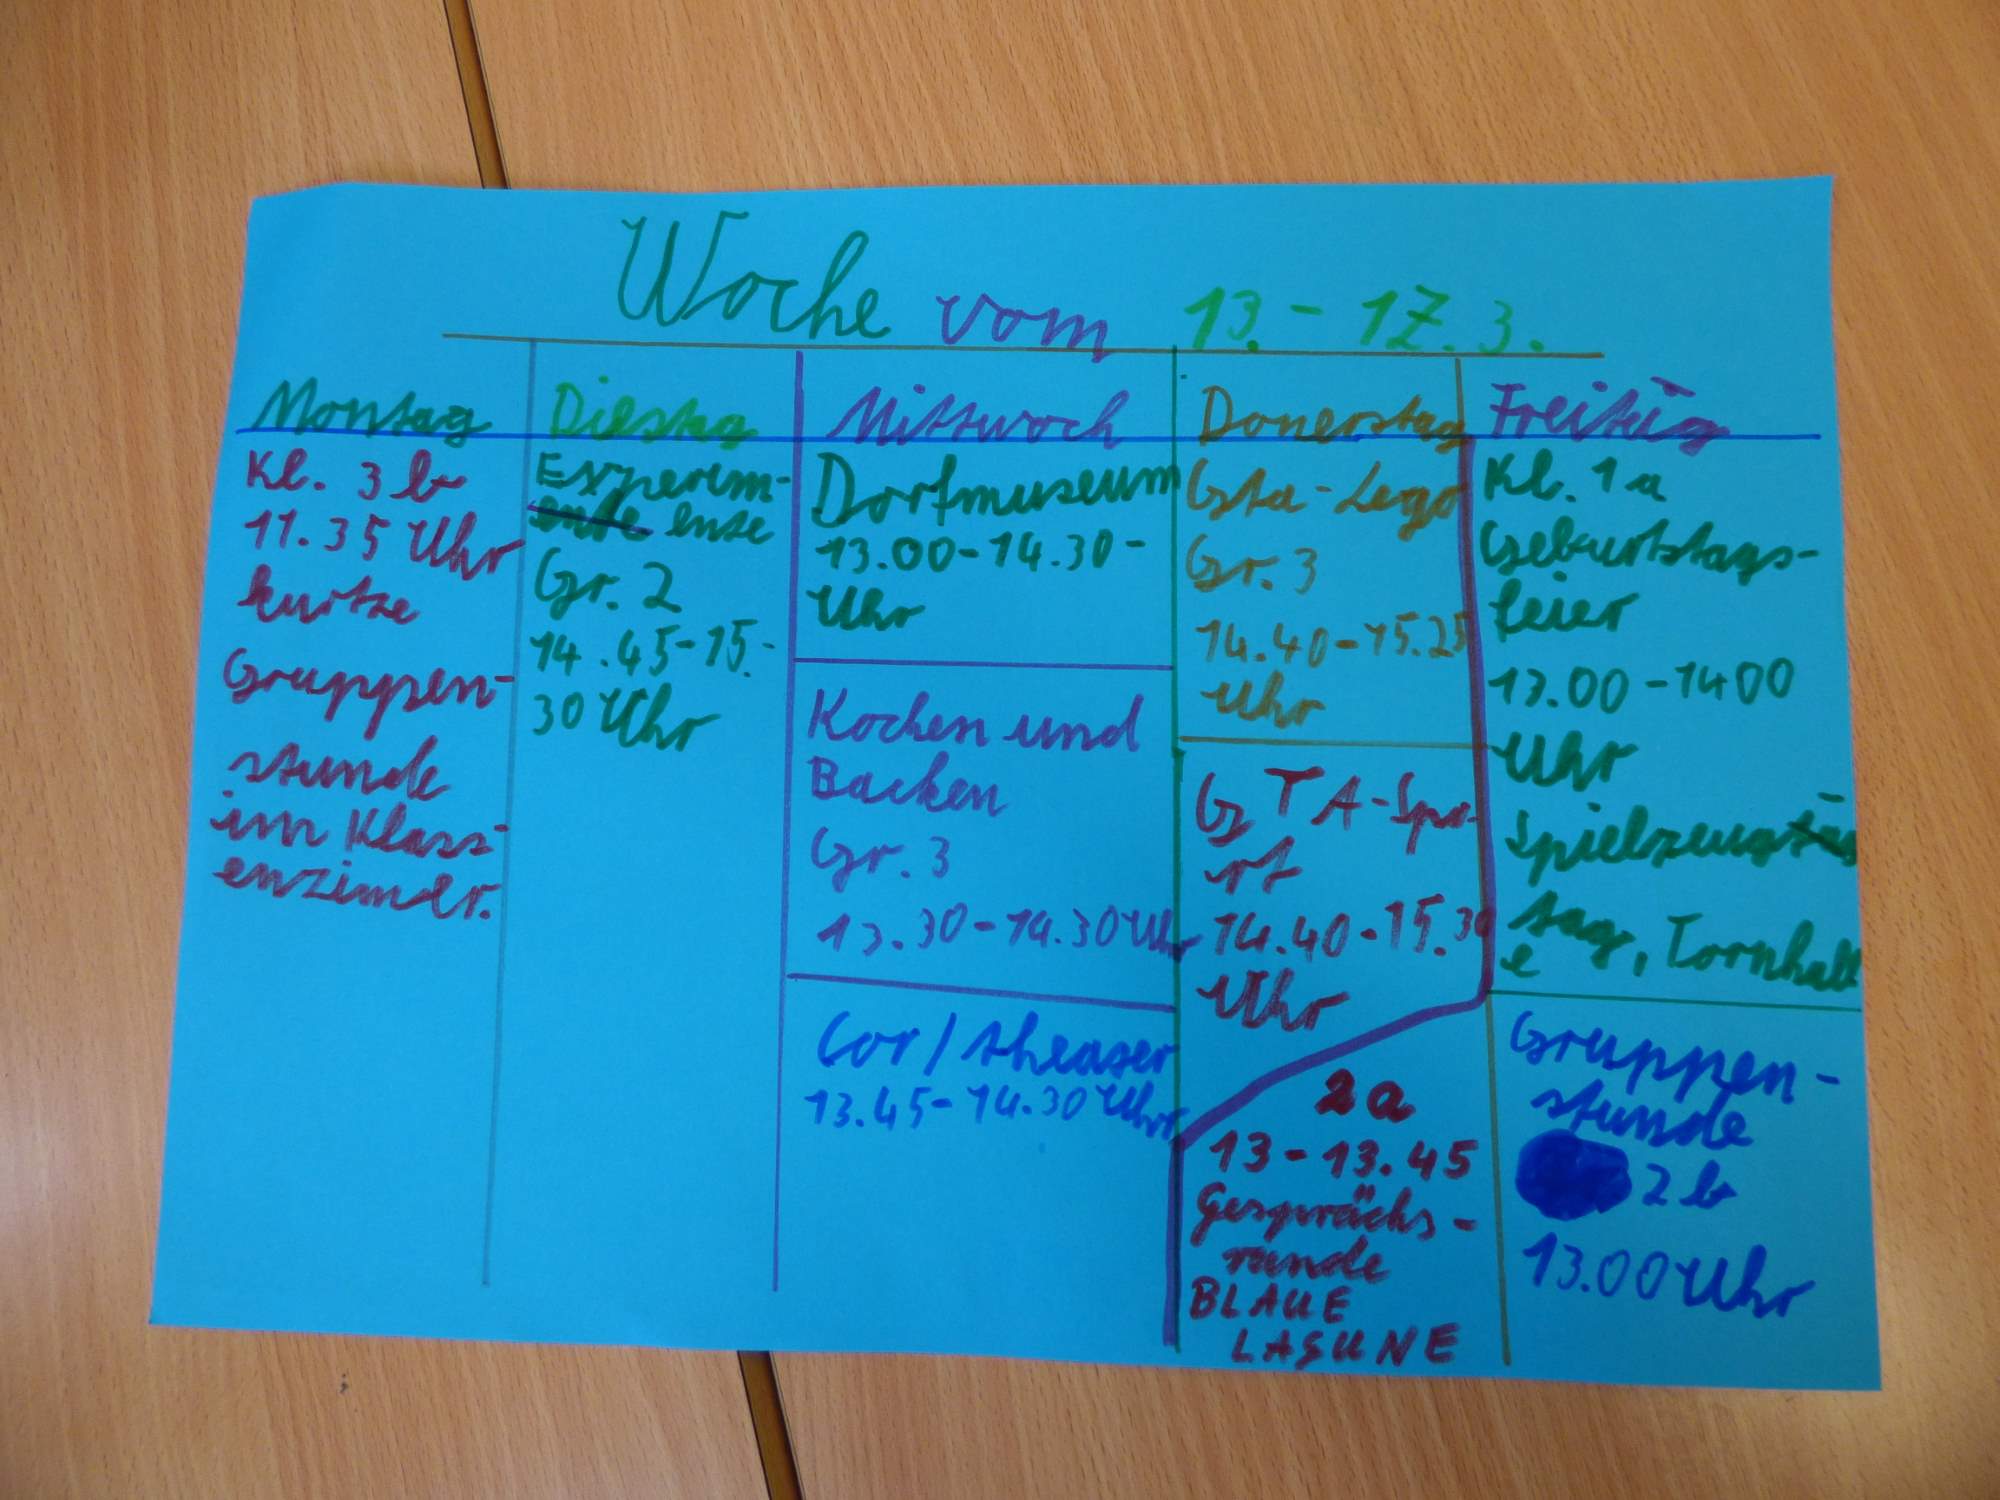 Woche vom 13.-17.3.
Montag
Kl. 3b
11.35 Uhr
kurtze
Gruppen-
stunde
im Klass-
enzimer.
Diestag
Experim-
ente
Gr. 2
14.45-15.-
30 Uhr
Mittwoch
Dorfmuseum
13.00-14.30-
Uhr
Kochen und
Backen
Gr. 3
13.30-14.30 Uhr
Cor/theater
13.45-14.30 Uhr
Donerstag
Gta-Lego
Gr. 3
14.40-15.25
Uhr
GTA-Spo-
rt
14.40-15.30
Uhr
2a
13-13.45
Gesprächs-
runde
BLAUE
LAGUNE
Freitag
Kl. 1a
Geburtstags-
feier
13.00-1400
Uhr
Spielzeug
tag, Tornhall
e
Gruppen-
stunde
2b
13.00 Uhr